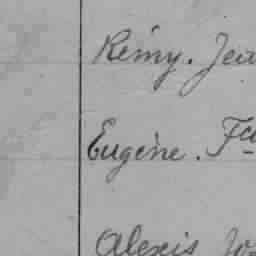 Rémy. Jea
Eugène.
Alexis Jo